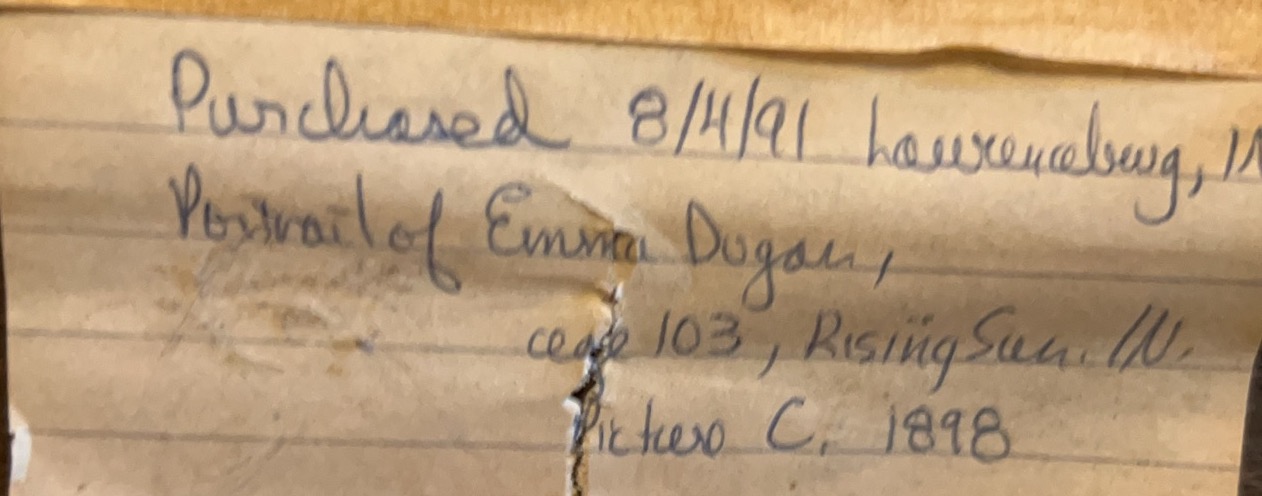 Purchased 8/4/91 Lawrenceburg, IN
Portrait of Emma Dugan,
age 103, Rising Sun. IN.
Picture C. 1898